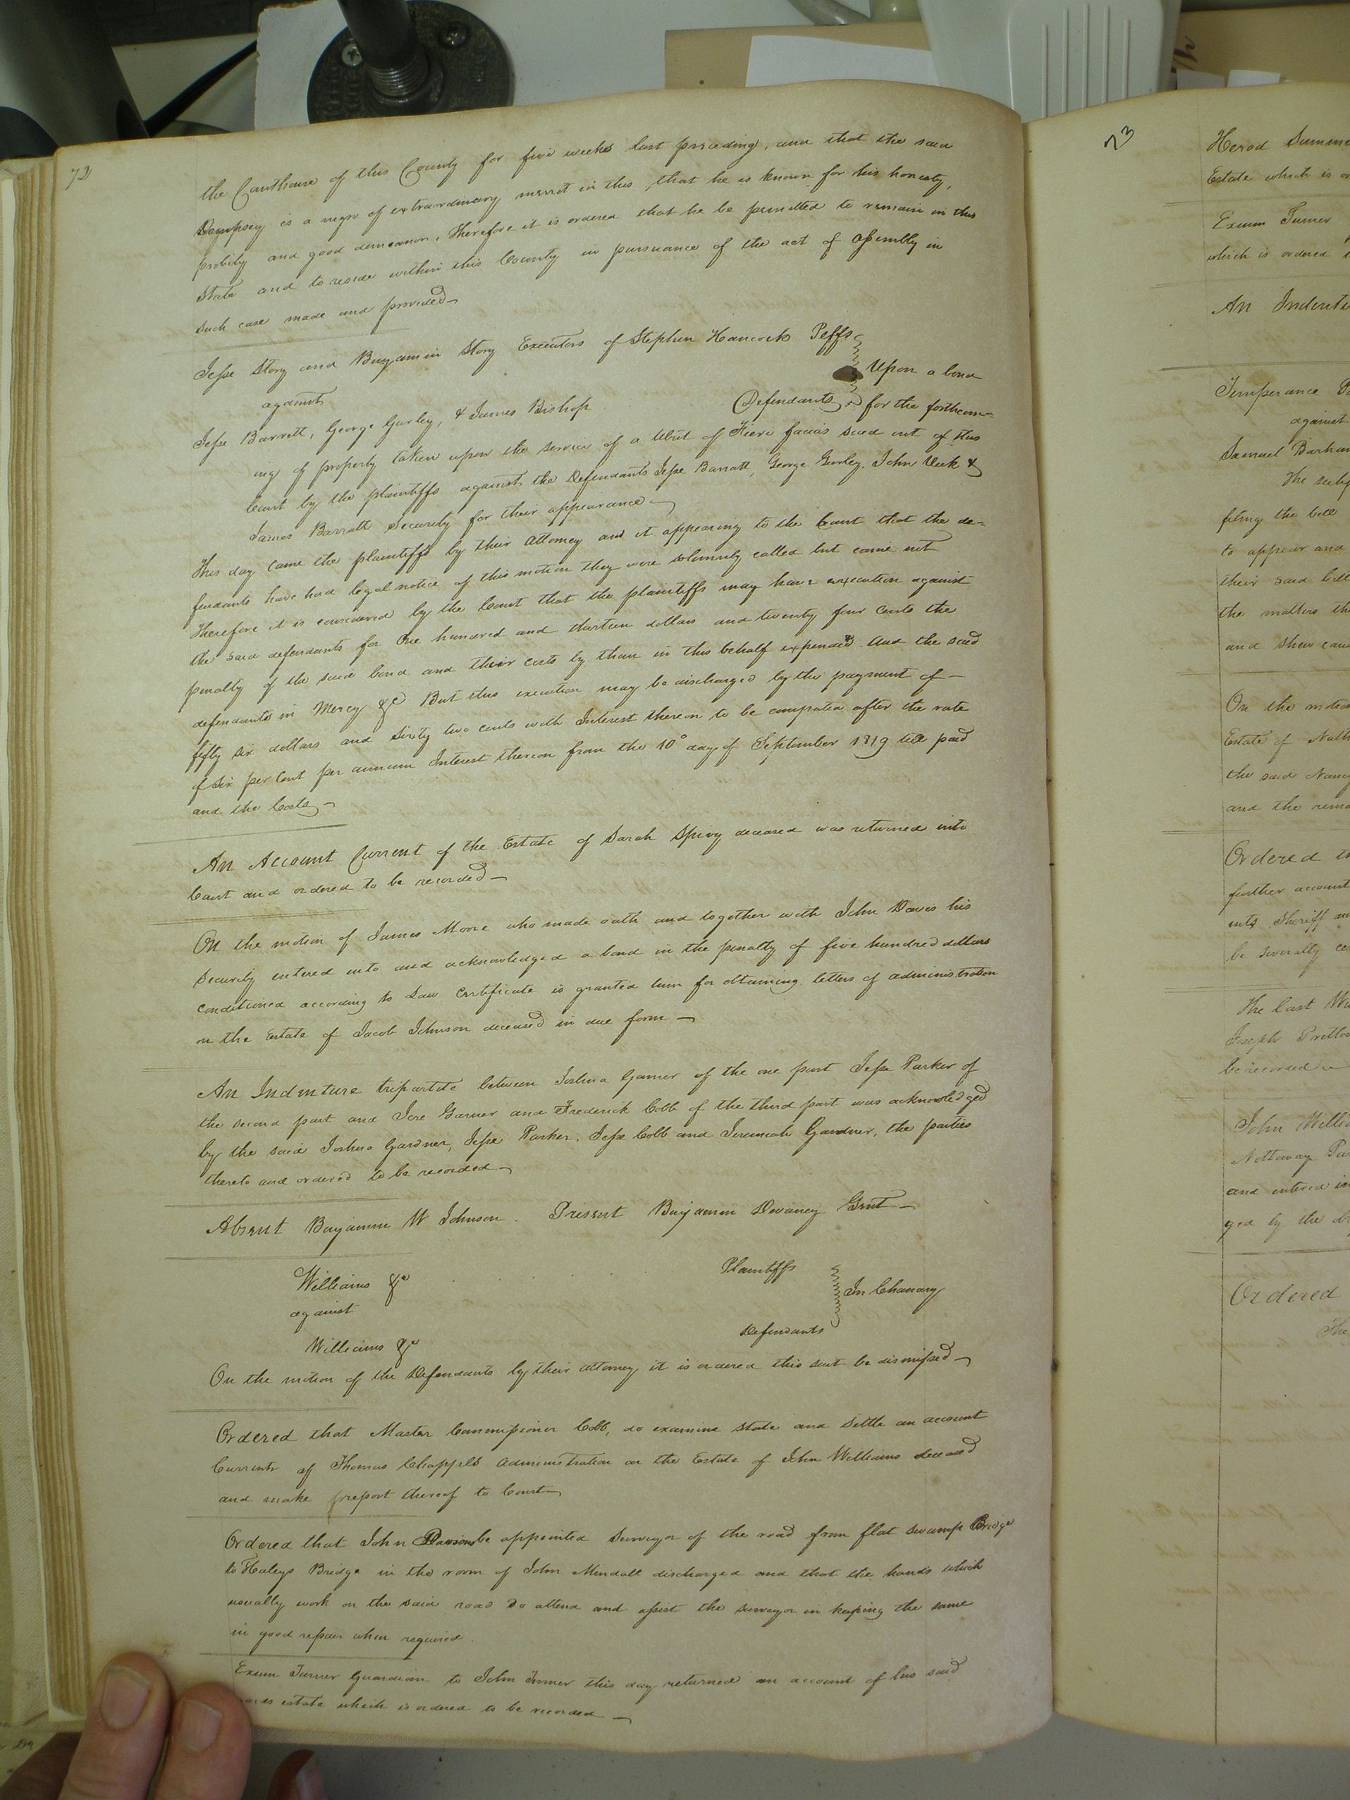 72
the Courthouse of this County for five weeks last preceding, and that the said
Dempsey is a negro of extraordinary merrit in this, that he is known for his honesty,
probity and good demeanor, Therefore it is ordered that he be permitted to remain in this
State and to reside within this County in pursuance of the act of Assembly in
such case made and provided
Jesse Story and Benjamin Story Executors of Stephen Hancock Plffs
against
Upon a bond
Jesse Barrett, George Gurley, & James Bishop Defendants for the forthcom-
ing of property taken upon the service of a Writ of Fieri facias sued out of this
Court by the plaintiffs against the Defendants Jesse Barratt, George Gurley, John &
James Barratt Security for their appearance
This day came the plaintiffs by their Attorney and it appearing to the Court that the de-
fendants have had legal notice of this motion they were solemnly called but came not
Therefore it is considered by the Court that the plaintiffs may have execution against
the said defendants for One hundred and thirteen dollars and twenty four cents the
penalty of the said bond and their costs by them in this behalf expended And the said
defendants in Mercy &c But this execution may be discharged by the payment of
fifty six dollars and sixty two cents with Interest thereon to be computed after the rate
of six per Cent per annum Interest thereon from the 10° day of September 1819 till paid
and the Costs
An Account Current of the Estate of Sarah Spivy deceased was returned into
Court and ordered to be recorded
On the motion of James Moore who made oath and together with John Davis his
Security entered into and acknowledged a bond in the penalty of five hundred dollars
conditioned according to Law Certificate is granted him for obtaining letters of administration
on the Estate of Jacob Johnson deceased in due form
An Indenture tripartite between Joshua Garner of the one part Jesse Parker of
the second part and Jere Garner and Frederick Cobb of the third part was acknowledged
by the said Joshua Gardner, Jesse Parker, Jesse Cobb and Jeremiah Gardner, the parties
thereto and ordered to be recorded
Absent Benjamin W Johnson. Present Benjamin Devaney Gent
Williams &c Plaintiffs
against In Chancery
Williams &c Defendants
On the motion of the Defendants by their attorney it is ordered this suit be dismissed
Ordered that Master Commissioner Cobb, do examine state and settle an account
Current of Thomas Chappels Administration on the Estate of John Williams deceased
and make report thereof to Court
Ordered that John be appointed Surveyor of the road from flat swamp Bridge
to Haleys Bridge in the room of John Mindall discharged and that the hands which
usually work on the said road do attend and assist the surveyor in keeping the same
in good repair when required
Exum Turner Guardian to John Turner this day returned an account of his said
wards estate which is ordered to be recorded
73
Herod
Estate which is
Exum Turner
which is ordered
An
Temperance
against
Samuel
The
filing the bill
to appear and
their said
the matters
and shew
On the
Estate of
the said Nancy
and the
Ordered
further account
Sheriff
be severally
The last
Joseph
be recorded
John
Nottoway
and entered
ged by the
Ordered
The